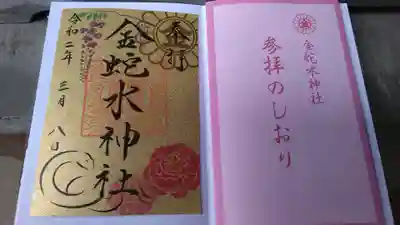 奉拝
金蛇水神社
令和二年
三月
八日
金蛇水神社
参拝のしおり